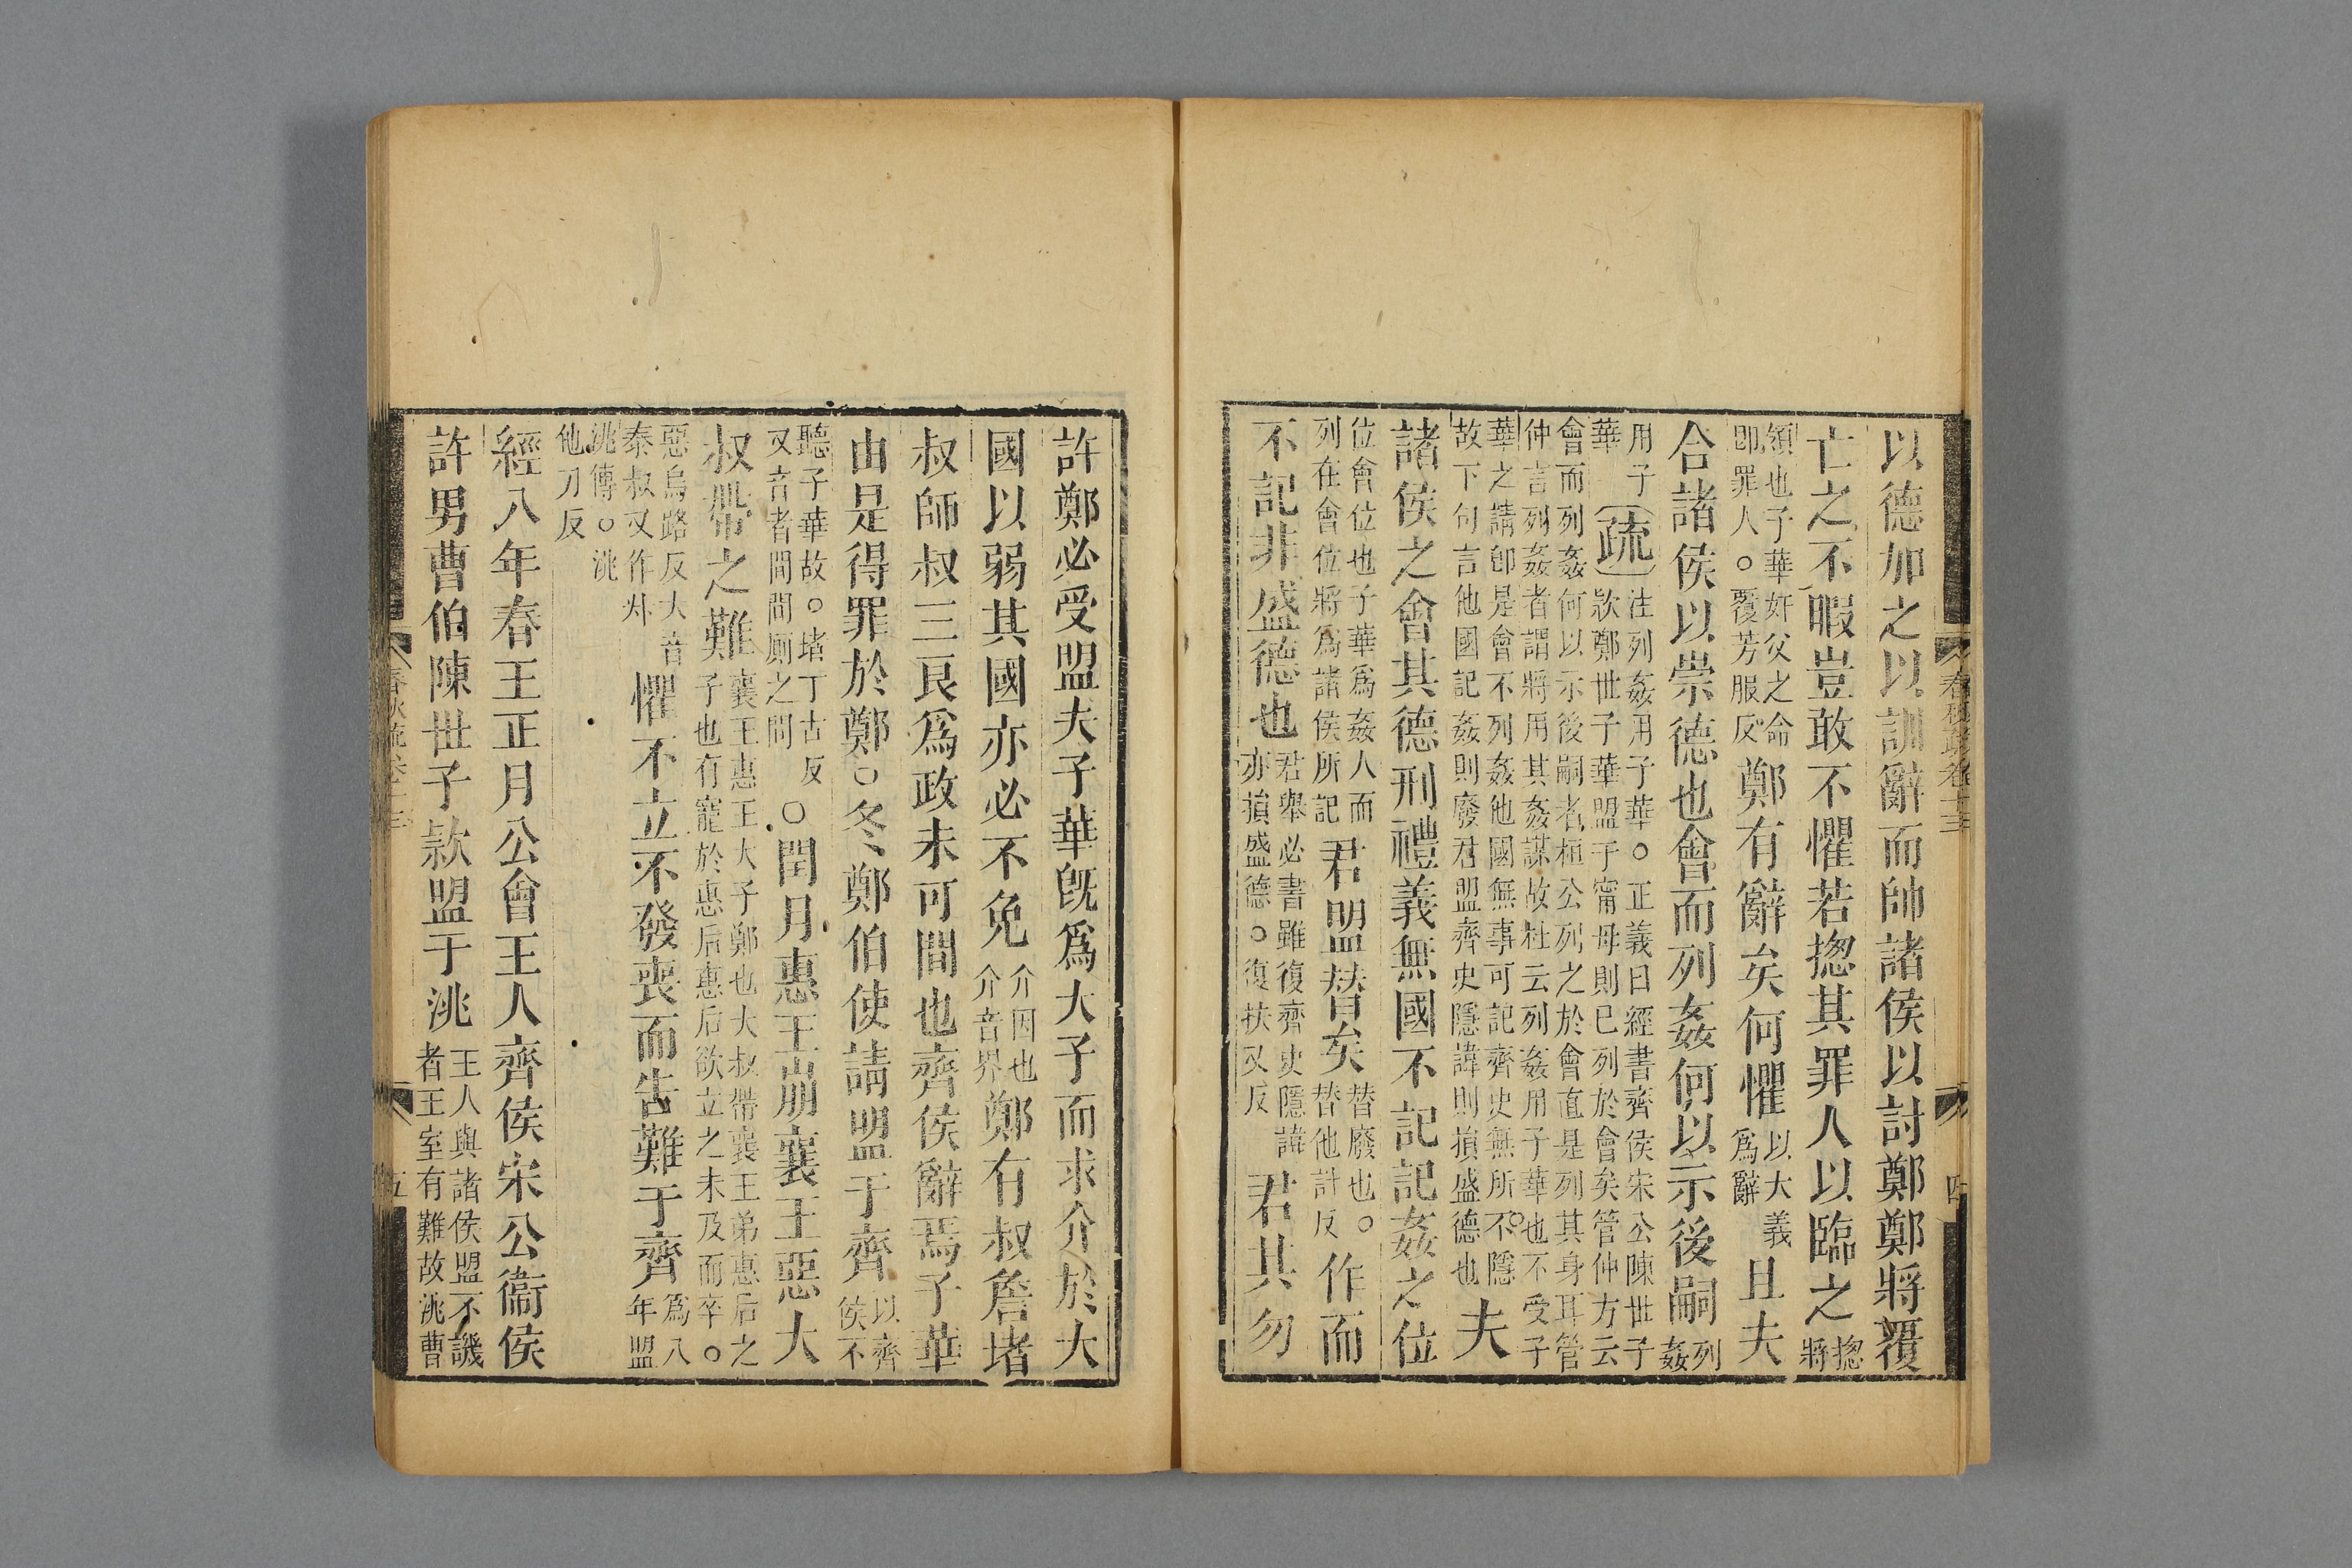 以德加之以訓辭而帥諸侯以討鄭鄭將覆
亡之不暇豈敢不懼若揔其罪人以臨之揔將
領也子華奸父之命
卽罪人○覆芳服反鄭有辭矣何懼以大義
爲辭且夫
合諸侯以崇德也會而列姦何以示後嗣列姦
用子
華
疏注列姦用子華○正義曰經書齊侯宋公陳世子
款鄭世子華盟于甯母則已列於會矣管仲方云
會而列姦何以示後嗣者桓公列之於會直是列其身耳管
仲言列姦者謂將用其姦謀故杜云列姦用子華也不受子
華之請卽是會不列姦他國無事可記齊史無所不隱
故下句言他國記姦則廢君盟齊史隱諱則損盛德也夫
諸侯之會其德刑禮義無國不記記姦之位
位會位也子華爲姦人而
列在會位將爲諸侯所記君盟替矣替廢也○
替他計反作而
不記非盛德也君舉必書雖復齊史隱諱
亦損盛德○復扶又反君其勿
許鄭必受盟夫子華旣爲大子而求介於大
國以弱其國亦必不免介因也
介音界鄭有叔詹堵
叔師叔三良爲政未可間也齊侯辭焉子華
由是得罪於鄭○冬鄭伯使請盟于齊以齊
侯不
聽子華故○堵丁古反
又音者間間厠之間○閏月惠王崩襄王惡大
叔帶之難襄王惠王大子鄭也大叔帶襄王弟惠后之
子也有寵於惠后惠后欲立之未及而卒○
惡烏路反大音
泰叔又作州懼不立不發喪而告難于齊爲八
年盟
洮傳○洮
他刀反
經八年春王正月公會王人齊侯宋公衞侯
許男曹伯陳世子款盟于洮王人與諸侯盟不譏
者王室有難故洮曹
春秋疏卷十三
四
春秋疏卷十三
五